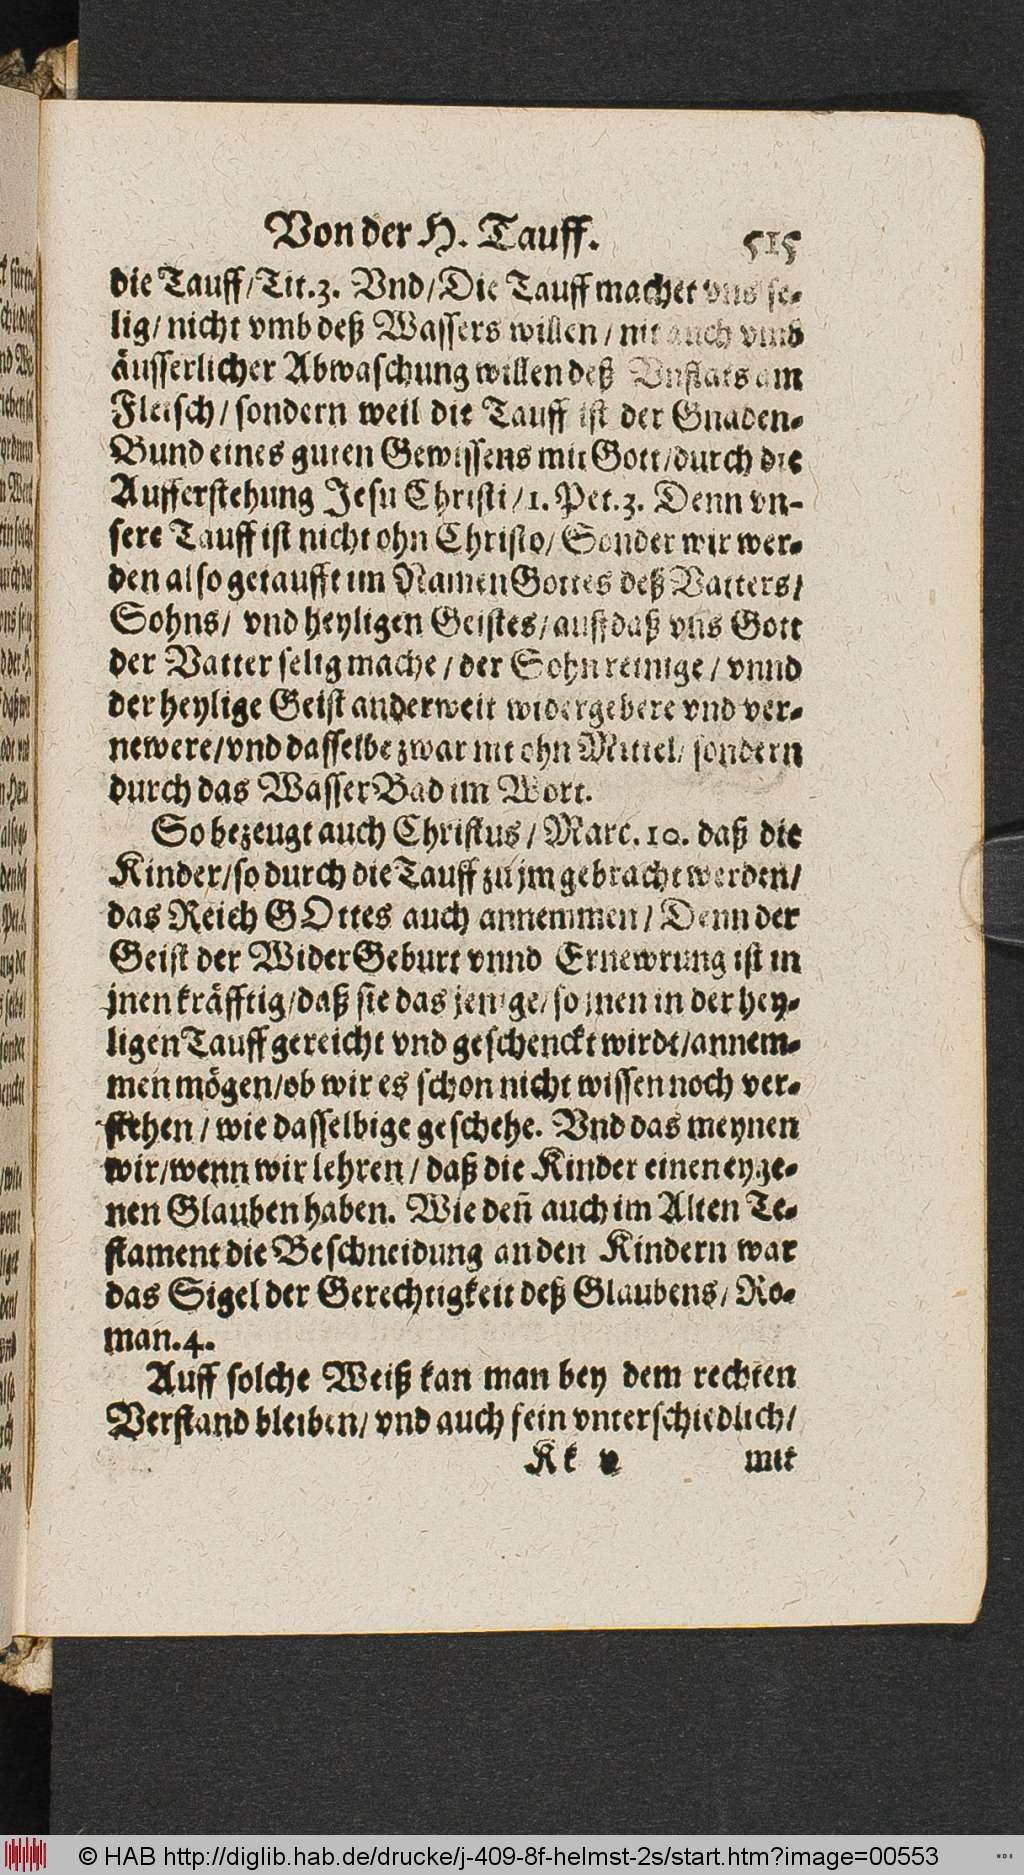 Von der H. Tauff. 515
die Tauff/Tit.3. Vnd/Die Tauff machet vns se-
lig/ nicht vmb deß Wassers willen / nit auch vmb
äusserlicher Abwaschung willen deß Vnflats am
Fleisch/ sondern weil die Tauff ist der Gnaden-
Bund eines guten Gewissens mit Gott/durch die
Aufferstehung Jesu Christi/1. Pet.3. Denn vn-
sere Tauff ist nicht ohn Christo/ Sonder wir wer-
den also getaufft im Namen Gottes deß Vatters/
Sohns/ vnd heyligen Geistes/ auff daß vns Gott
der Vatter selig mache / der Sohn reinige / vnnd
der heylige Geist anderweit widergebere vnd ver-
newere/vnd dasselbe zwar nit ohn Mittel/ sondern
durch das Wasser Bad im Wort.
So bezeugt auch Christus / Marc. 10. daß die
Kinder/so durch die Tauff zu jm gebracht werden/
das Reich GOttes auch annemmen/ Denn der
Geist der WiderGeburt vnnd Ernewrung ist in
jnen kräfftig/daß sie das jenige/ so jnen in der hey-
ligen Tauff gereicht vnd geschenckt wirdt/annem-
men mögen/ob wir es schon nicht wissen noch ver-
stehen / wie dasselbige geschehe. Vnd das meynen
wir/wenn wir lehren / daß die Kinder einen eyge-
nen Glauben haben. Wie deñ auch im Alten Te-
stament die Beschneidung an den Kindern war
das Sigel der Gerechtigkeit deß Glaubens/ Ro-
man.4.
Auff solche Weiß kan man bey dem rechten
Verstand bleiben/ vnd auch fein vnterschiedlich/
Kk v mit
© HAB http://diglib.hab.de/drucke/j-409-8f-helmst-2s/start.htm?image=00553